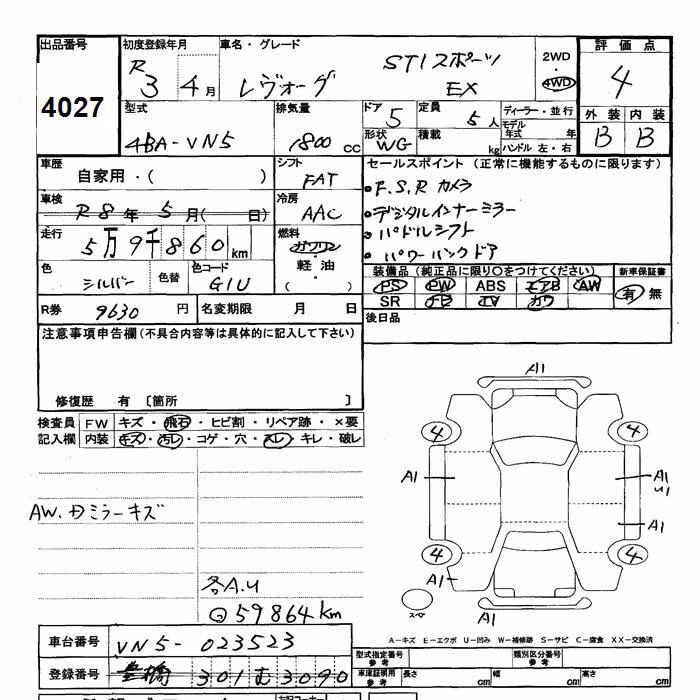 出品番号 初度登録年月 車名・グレード 評価点
4027 R 3 4月 レヴォーグ STIスポーツ EX 2WD 4WD 4
型式 排気量 ドア 定員 ディーラー・並行 外装 内装
4BA-VN5 1800cc 5 5人 モデル年式 年 B B
形状 WG 積載 kg ハンドル 左・右
車歴 シフト セールスポイント(正常に機能するものに限ります)
自家用・( ) FAT ・F.S.R カメラ
車検 冷房 ・デジタルインナーミラー
R8年5月( 日) AAC ・パドルシフト
走行 燃料 ・パワーバックドア
5万9千860km ガソリン
軽油・
( )
色 色替 色コード 装備品(純正品に限り○をつけてください) 新車保証書
シルバー G1U PS PW ABS エアB AW 有 無
SR ナビ TV カワ
R券 9630円 名変期限 月 日 後日品
注意事項申告欄(不具合内容等は具体的に記入して下さい)
修復歴 有 〔箇所 〕
検査員 FW キズ・飛石・ヒビ割・リペア跡・×要
記入欄 内装 キズ・汚レ・コゲ・穴・スレ・キレ・破レ
A1
4 4
A1 A1
U1
A1
4 4
A1
A1
スペア
AW.ドミラーキズ
各A.U
59864km
A-キズ E-エクボ U-凹み W-補修跡 S-サビ C-腐食 XX-交換済
車台番号 VN5-023523
登録番号 豊橋 301 む 3090
型式指定番号 参考 類別区分番号 参考
車庫証明用 参考 長さ cm 幅 cm 高さ cm